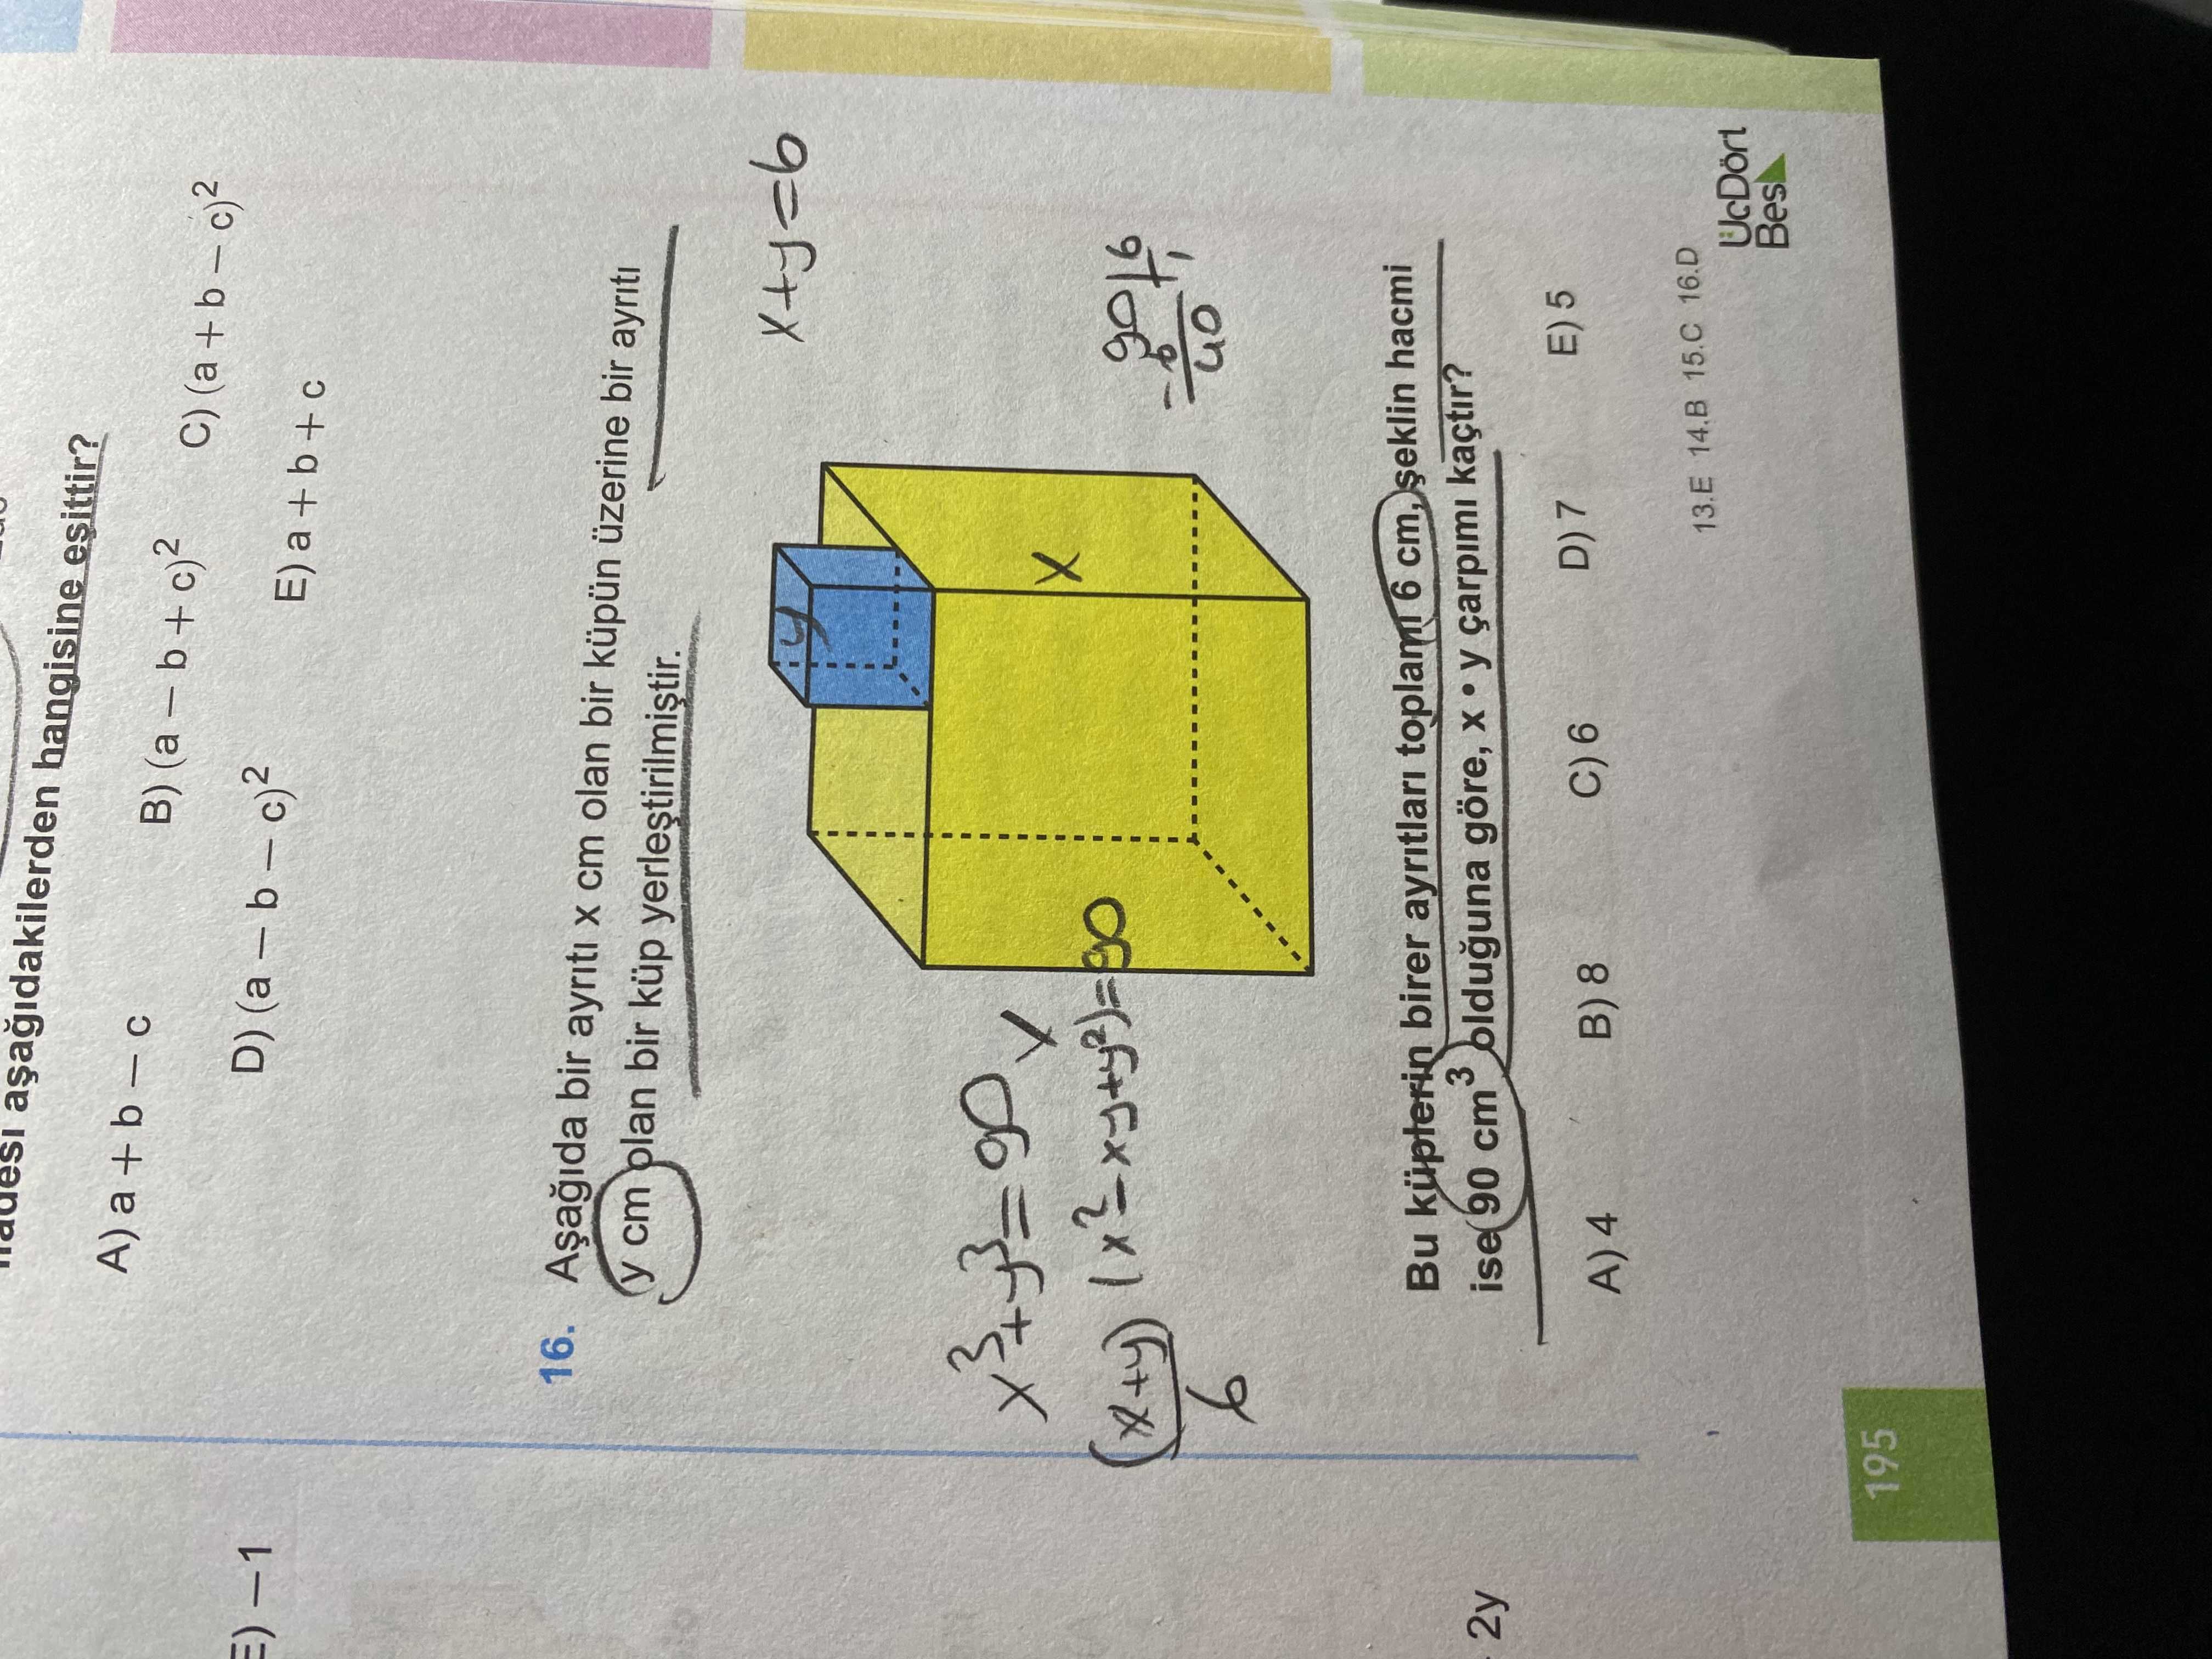 hangisine eşittir?
A) a + b – c
B) (a – b + c)²
C) (a + b – c)²
D) (a – b – c)²
E) a + b + c
E) –1
16. Aşağıda bir ayrıtı x cm olan bir küpün üzerine bir ayrıtı
y cm olan bir küp yerleştirilmiştir.
x+y=6
y
x
x³+y³=90
(x+y) (x²–xy+y²)=90
6
90 | 6
Bu küplerin birer ayrıtları toplamı 6 cm, şeklin hacmi
ise 90 cm³ olduğuna göre, x • y çarpımı kaçtır?
A) 4 B) 8 C) 6 D) 7 E) 5
2y
195
13.E 14.B 15.C 16.D
ÜçDört
Beş